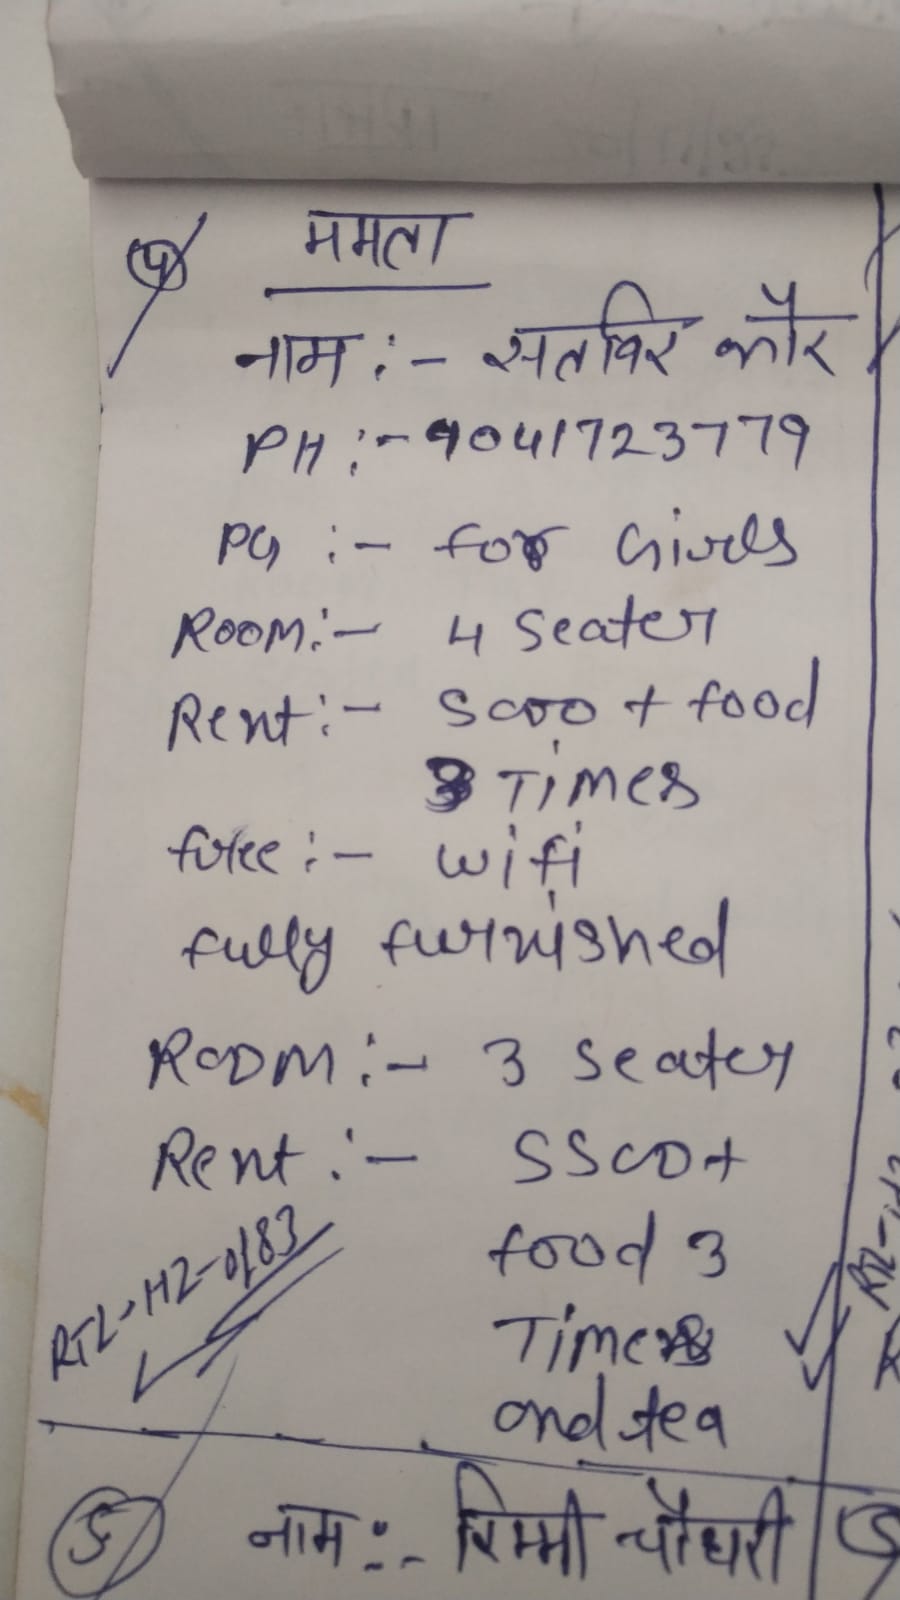 ममता
नाम :- सतविर कौर
PH :- 9041723779
PG :- for Girls
Room :- 4 Seater
Rent :- 5000 + food
3 Times
free :- wifi
fully furnished
Room :- 3 Seater
Rent :- 5500+
food 3
Times
and tea
RTL-HZ-0183
5 नाम :- रिम्मी चौधरी